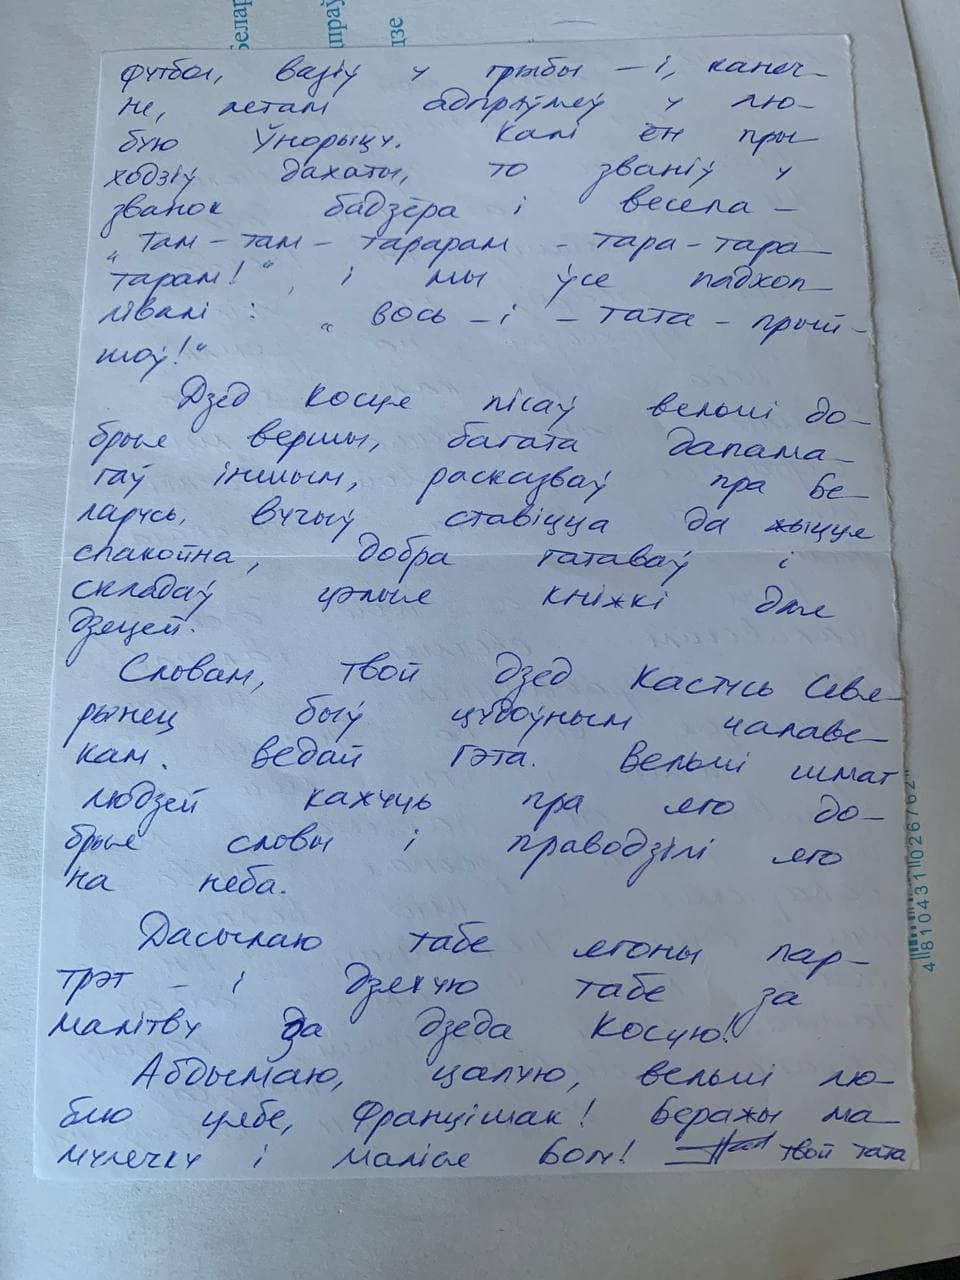 Белар
праў
дзе
футбол, вазіў у грыбы – і,канеч-
не, летам адпраўляў у лю-
бую Ўнорыцу. Калі ён пры
ходзіў дахаты, то званіў у
званок бадзёра і весела –
„Там – там – тарарам – тара – тара
тарам!“, і мы ўсе падхоп –
лівалі : „Вось – і – тата – прый –
шоў!“
Дзед Косця пісаў вельмі до –
брыя вершы, багата дапама –
гаў іншым, расказваў пра Бе –
ларусь. Вучыў ставіцца да жыцця
спакойна, добра гатаваў і
складаў цэлыя кніжкі для
дзяцей.
Словам, твой дзед Кастусь Севя –
рынец быў цудоўным чалаве –
кам. Ведай гэта. Вельмі шмат
людзей кажуць пра яго до –
брыя словы і праводзілі яго
на неба.
Дасылаю табе ягоны пар –
трэт – і дзякую табе за
малітву за дзеда Косцю!
Абдымаю, цалую, вельмі лю –
блю цябе, Францішак! Беражы ма –
мулечку і маліся Богу! твой тата
4 810431 026762